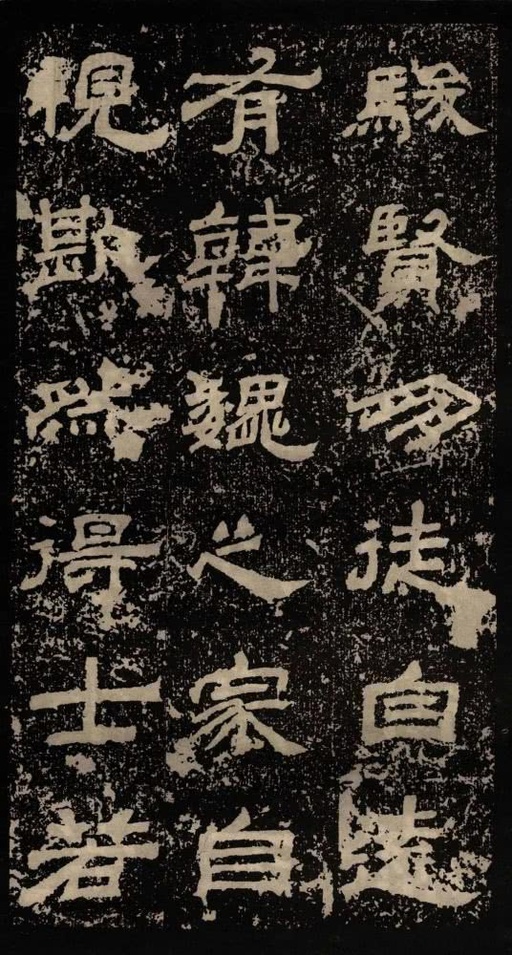 駿賢朋徒自遠
有韓魏之家自
視然得士若